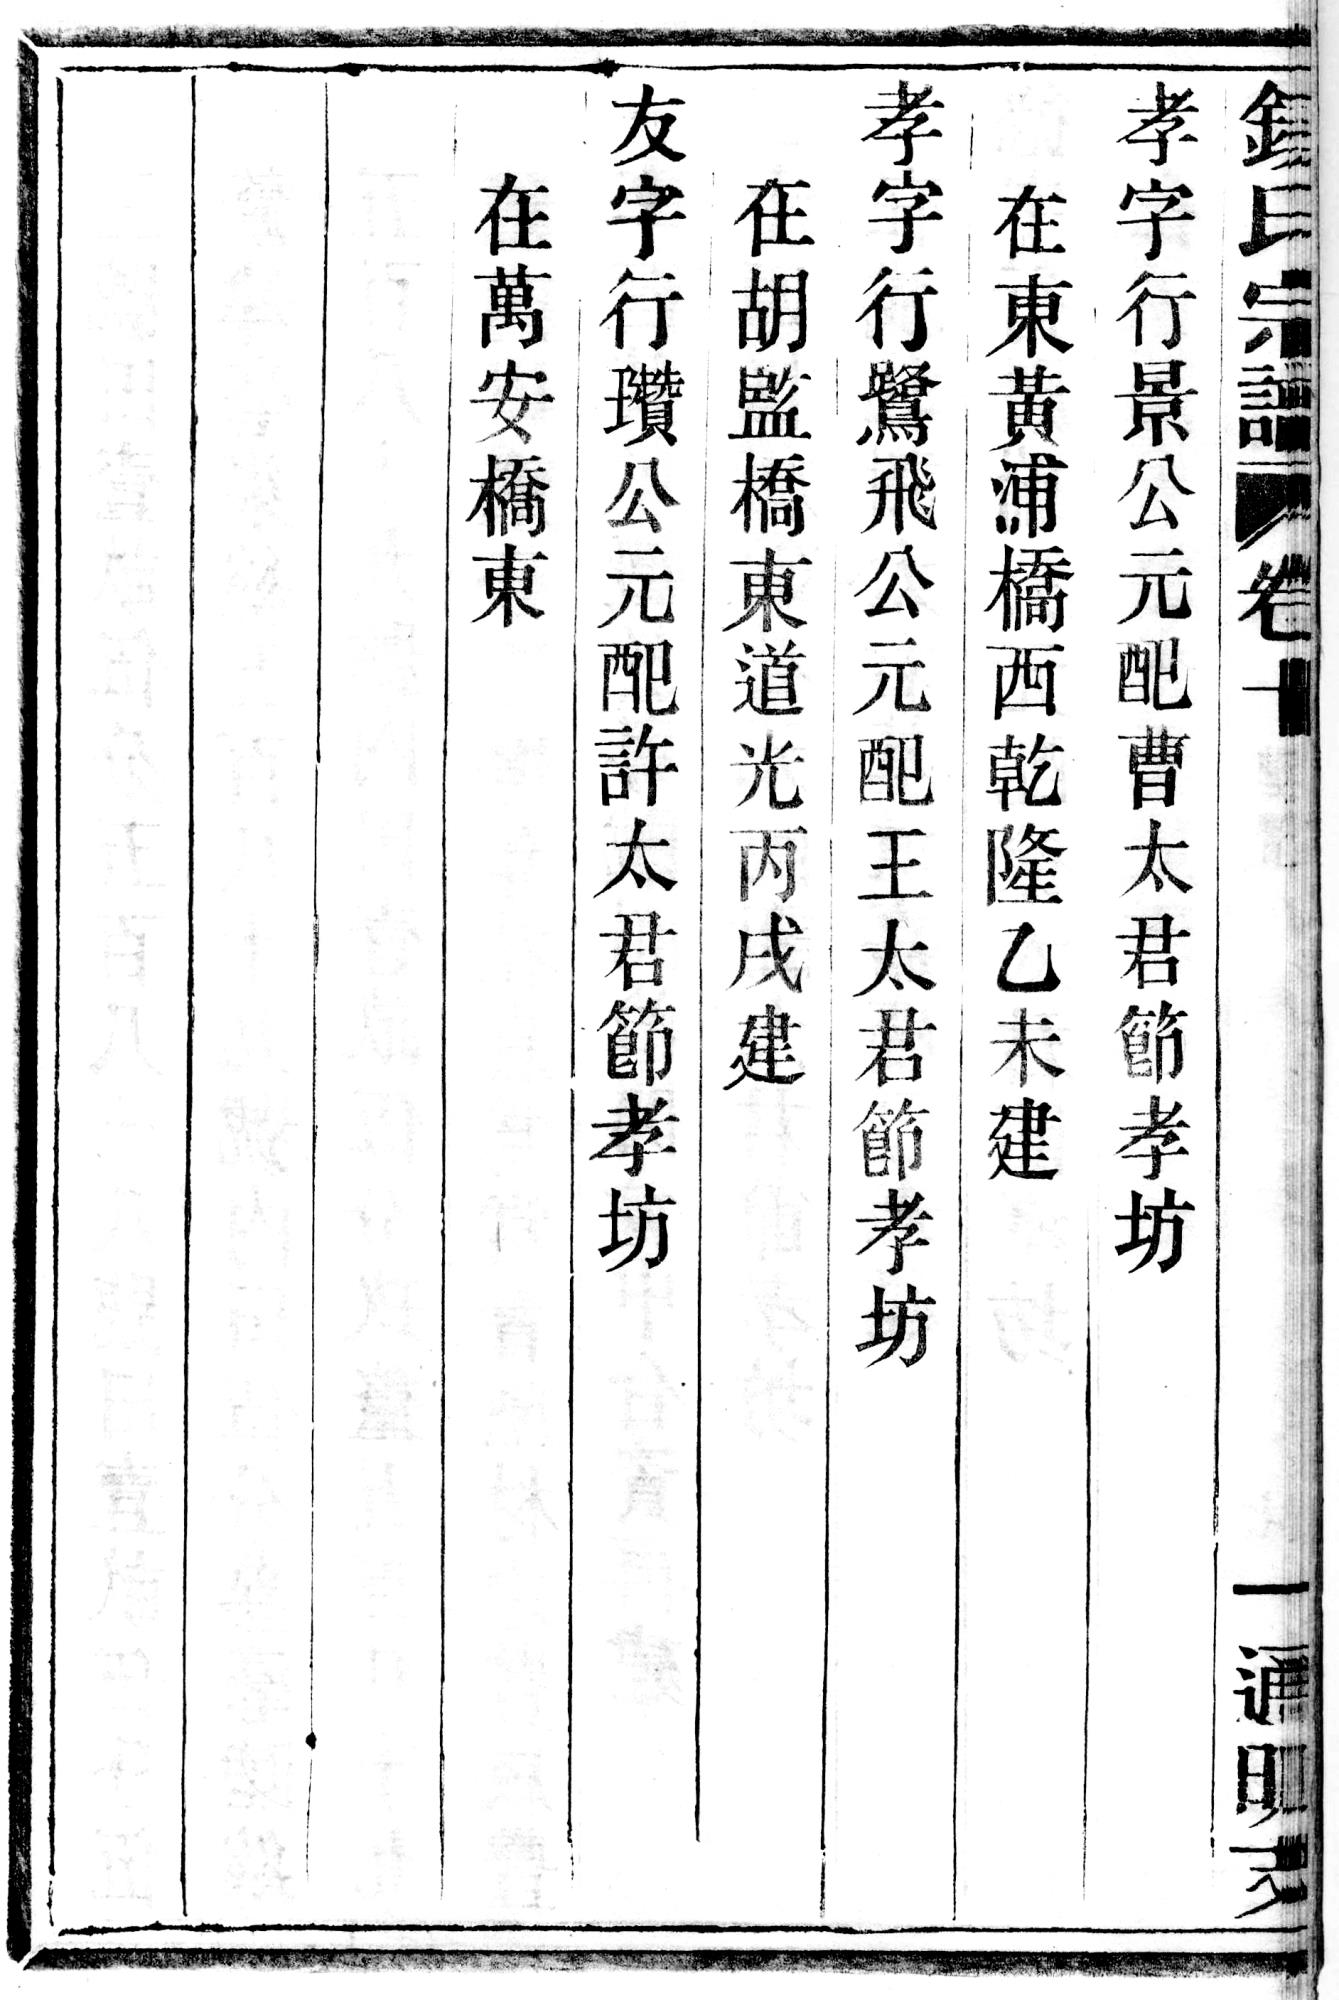 氏宗譜 卷十 一 通明支
孝字行景公元配曹太君節孝坊
在東黃浦橋西乾隆乙未建
孝字行鷺飛公元配王太君節孝坊
在胡監橋東道光丙戌建
友字行瓚公元配許太君節孝坊
在萬安橋東